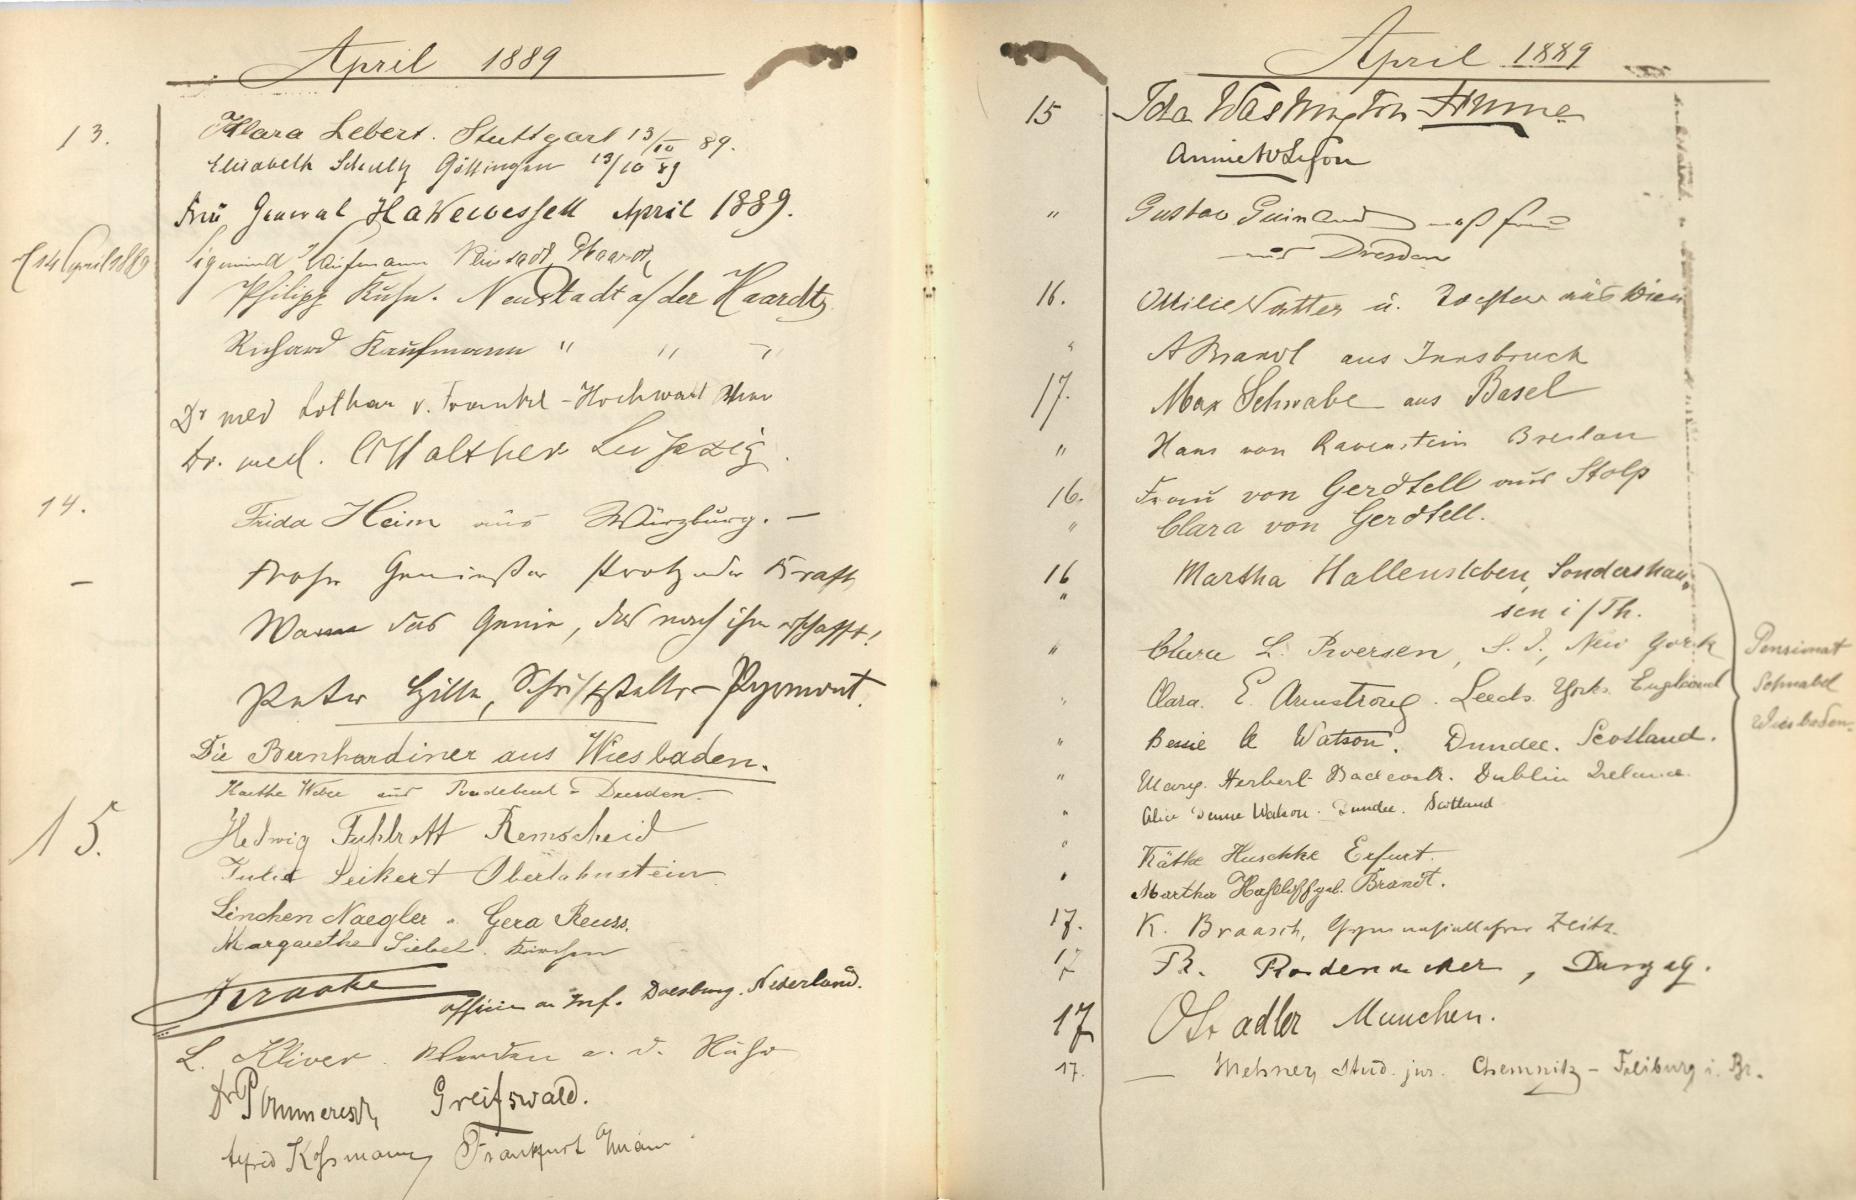 April 1889
13.
Klara Lebert. Stuttgart 13/IV 89.
Elisabeth Schultz Göttingen 13/10 89
Frau General Hakewessell April 1889.
14 April 1889
Sigmund Kaufmann Neustadt Haardt
Philipp Kuhn. Neustadt a/der Haardt
Richard Kaufmann " " "
Dr med Lothar v. Frankl-Hochwart Wien
Dr. med. Walther Leipzig.
14.
Frida Heim aus Würzburg. —
— Froher Genießer Protz oder Kraft,
das Genie, das noch ihn erschafft!
Peter Hille, Schriftsteller – Pyrmont.
Die Bernhardiner aus Wiesbaden.
Kaethe aus Dresden.
15.
Hedwig Fuhlrott Remscheid
Julie Seikert Oberlahnstein
Linchen Naegler. Gera Reuss.
Margarethe Siebel. Kirchen
Kraake
officier an Inf. Doesburg. Nederland.
L. Kliver. Werden a. d. Ruhr
Dr Pommeresch, Greifswald.
Alfred Kossmann, Frankfurt Main
April 1889
15 Ida Washington Hume
Annie
" Gustav nebst Frau
aus Dresden
16. Ottilie Natter u. Tochter aus Wien
" A Brandl aus Innsbruck
17. Max Schwabe aus Basel
" Hans von Ravenstein Breslau
16. Frau von Gerdtell aus Stolp
" Clara von Gerdtell.
16 Martha Hallensleben, Sondershau-
" sen i/Th.
" Clara L. Iversen, S. I., New York
Pensionat
" Clara. E. Armstrong. Leeds. Yorks. England
Schnabel
Wiesbaden.
" Bessie K Watson. Dundee. Scotland.
" Marg. Herbert Dublin Ireland.
" Alice Watson. Dundee. Scotland
" Käthe Huschke Erfurt.
" Martha Haßloff geb. Brandt.
17. K. Braasch, Gymnasiallehrer Zeitz.
17 Fr. Rodenacker, Danzig.
17 Otto adler München.
17. — Mehner, stud. jur. Chemnitz – Freiburg i. Br.